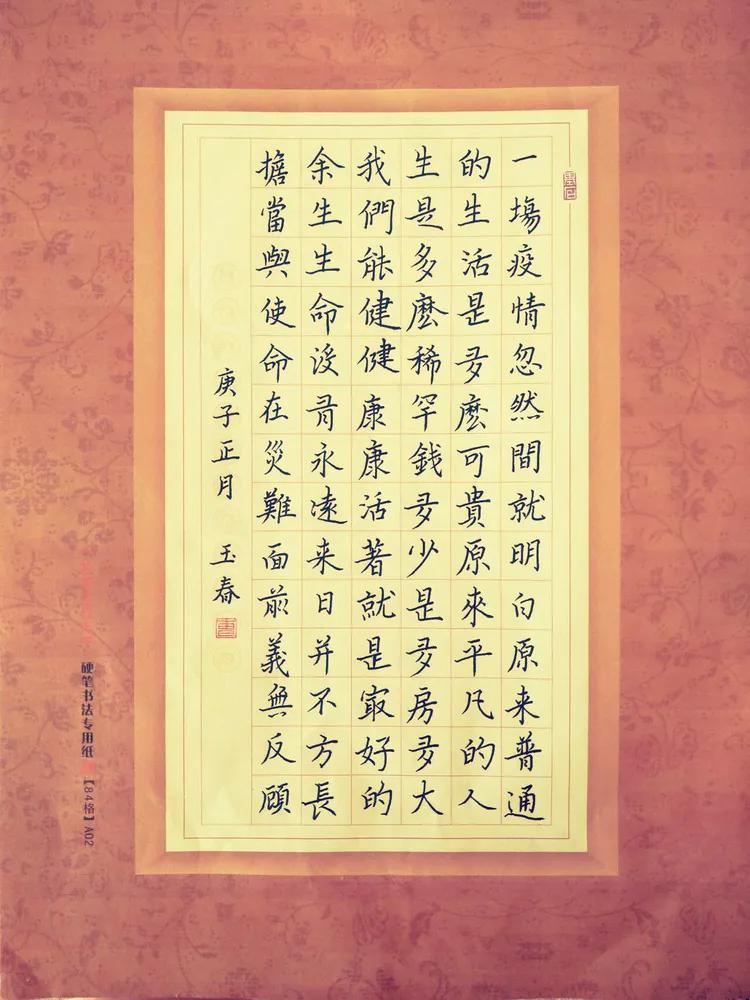 一塲疫情忽然間就明白原来普通
的生活是多麽可貴原來平凡的人
生是多麽稀罕錢多少是多房多大
我們能健健康康活著就是最好的
余生生命没有永遠来日并不方長
擔當與使命在災難面前義無反顧
庚子正月 玉春
硬笔书法专用纸 【84格】A02